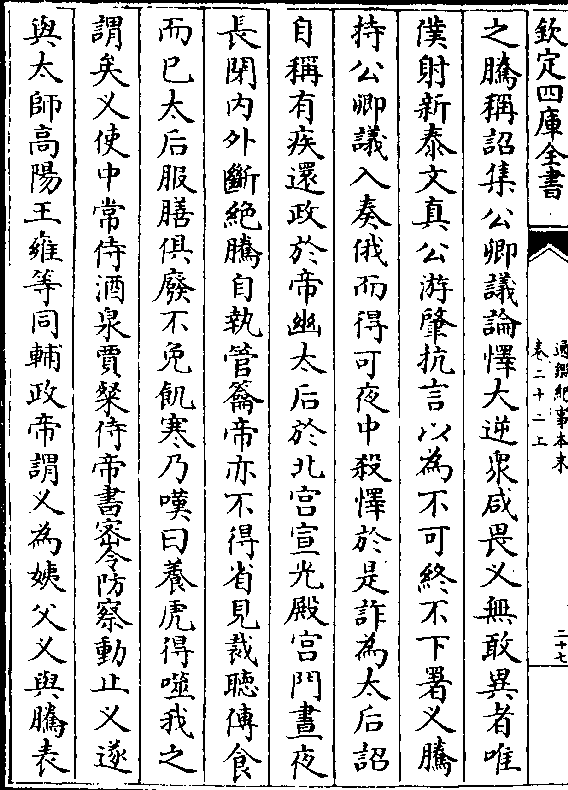 欽定四庫全書
通鑑紀事本末
卷二十二上
二十七
之騰稱詔集公卿議論懌大逆衆咸畏乂無敢異者唯
僕射新泰文真公游肇抗言以為不可終不下署乂騰
持公卿議入奏俄而得可夜中殺懌於是詐為太后詔
自稱有疾還政於帝幽太后於北宫宣光殿宫門晝夜
長閉内外斷絶騰自執管籥帝亦不得省見裁聽傳食
而已太后服膳俱廢不免飢寒乃嘆曰養虎得噬我之
謂矣乂使中常侍酒泉賈粲侍帝書密令防察動止乂遂
與太師高陽王雍等同輔政帝謂乂為姨父乂與騰表